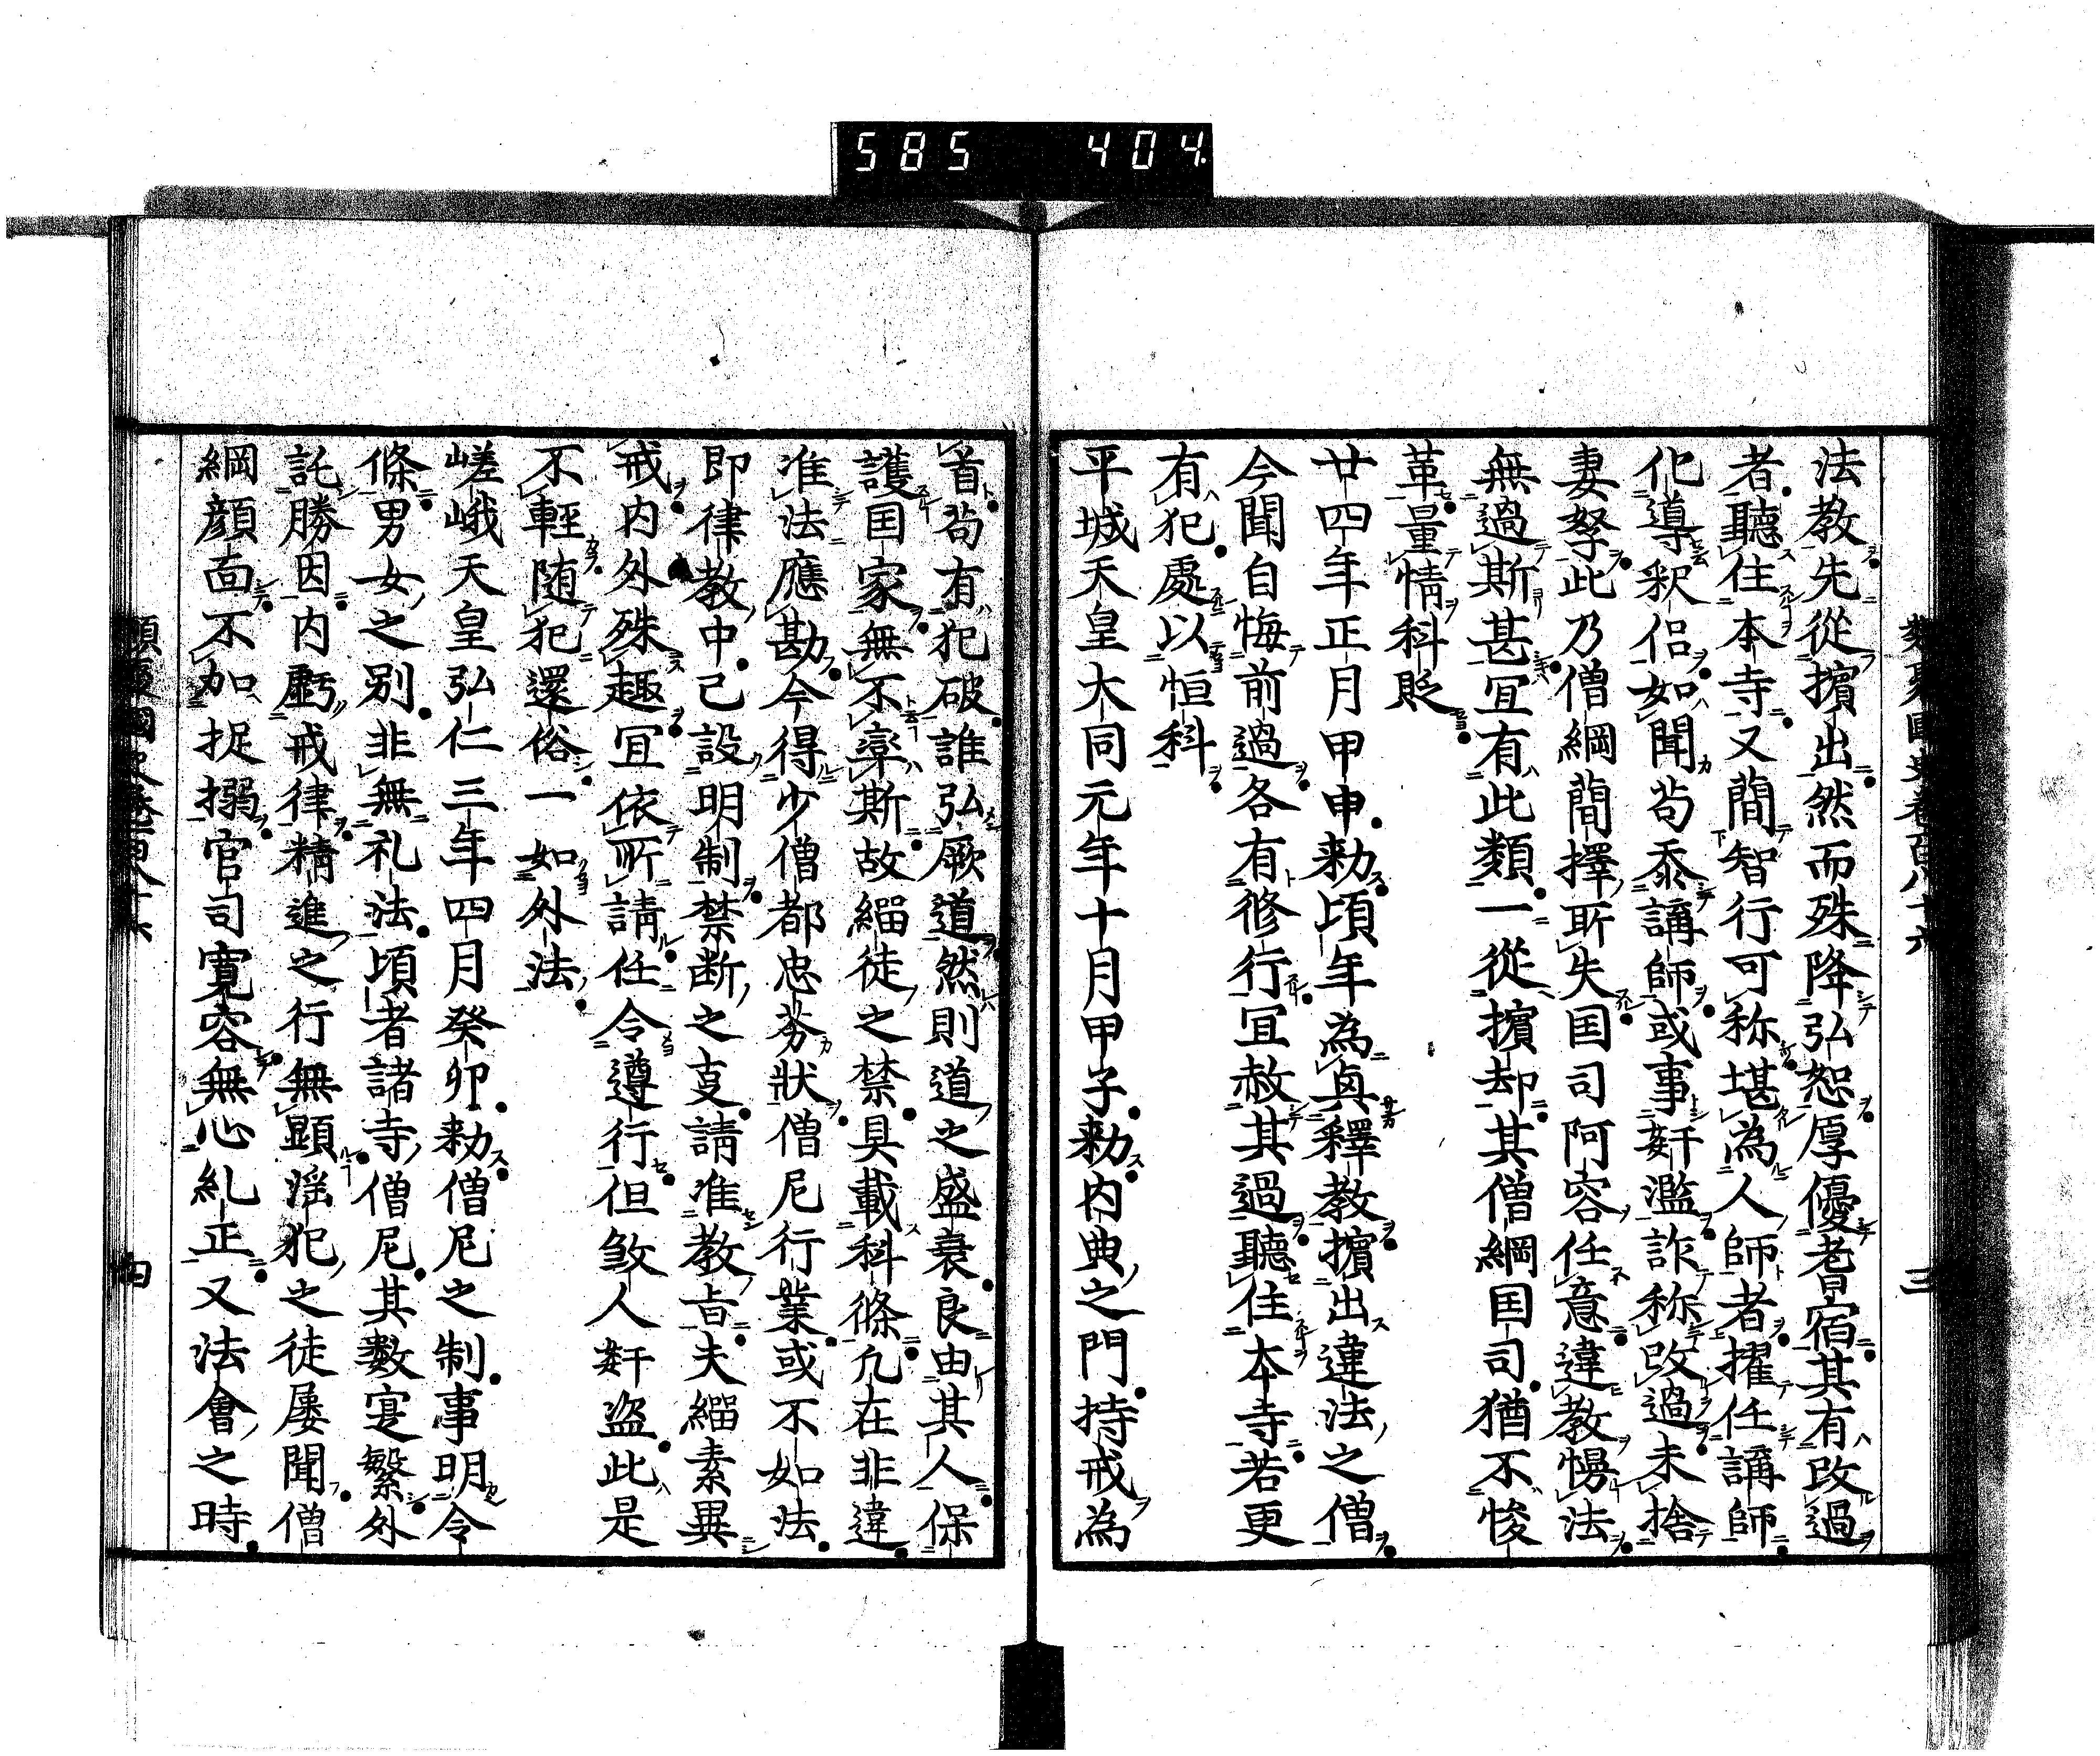 585 404
類聚國史卷百八十六 三
法教先從擯出然而殊降弘恕厚優耆宿其有改過
者聽住本寺又簡智行可称堪為人師者擢任講師
化導釈侣如聞苟忝講師或事姧濫詐称改過未捨
妻孥此乃僧綱簡擇所失囯司阿容任意違教慢法
無過斯甚冝有此類一從擯却其僧綱囯司猶不悛
革量情科貶
廿四年正月甲申勅頃年為真釋教擯出違法之僧
今聞自悔前過各有修行冝赦其過聽住本寺若更
有犯處以恒科
平城天皇大同元年十月甲子勅内典之門持戒為
首苟有犯破誰弘厥道然則道之盛衰良由其人保
護囯家無不藥斯故緇徒之禁具載科條凣在非違
准法應勘今得少僧都忠芬狀僧尼行業或不如法
即律教中已設明制禁断之支請准教旨夫緇素異
戒内外殊趣冝依所請任令遵行但煞人姧盗此是
不輕随犯還俗一如外法
嵯峨天皇弘仁三年四月癸卯勅僧尼之制事明令
條男女之别非無礼法頃者諸寺僧尼其數寔繁外
託勝因内虧戒律精進之行無顕滛犯之徒屢聞僧
綱顔面不加捉搦官司寛容無心糺正又法會之時